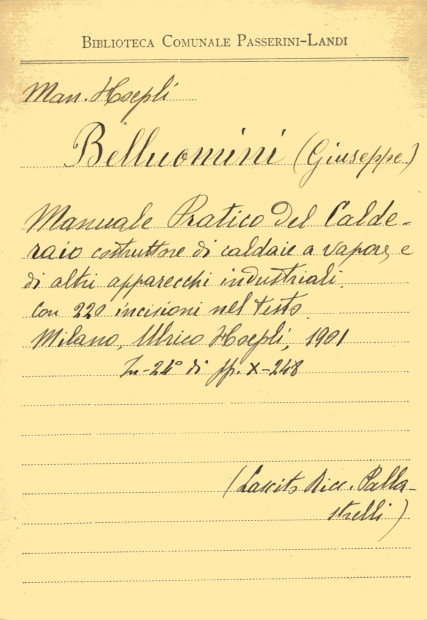 BIBLIOTECA COMUNALE PASSERINI-LANDI
Man. Hoepli
Belluomini (Giuseppe)
Manuale Pratico Del Calde-
raio costruttore di caldaie a vapore, e
di altri apparecchi industriali.
con 220 incisioni nel testo.
Milano, Ulrico Hoepli, 1901
In-24° di pp. X-248
(Lascito Ricc. Palla-
strelli)